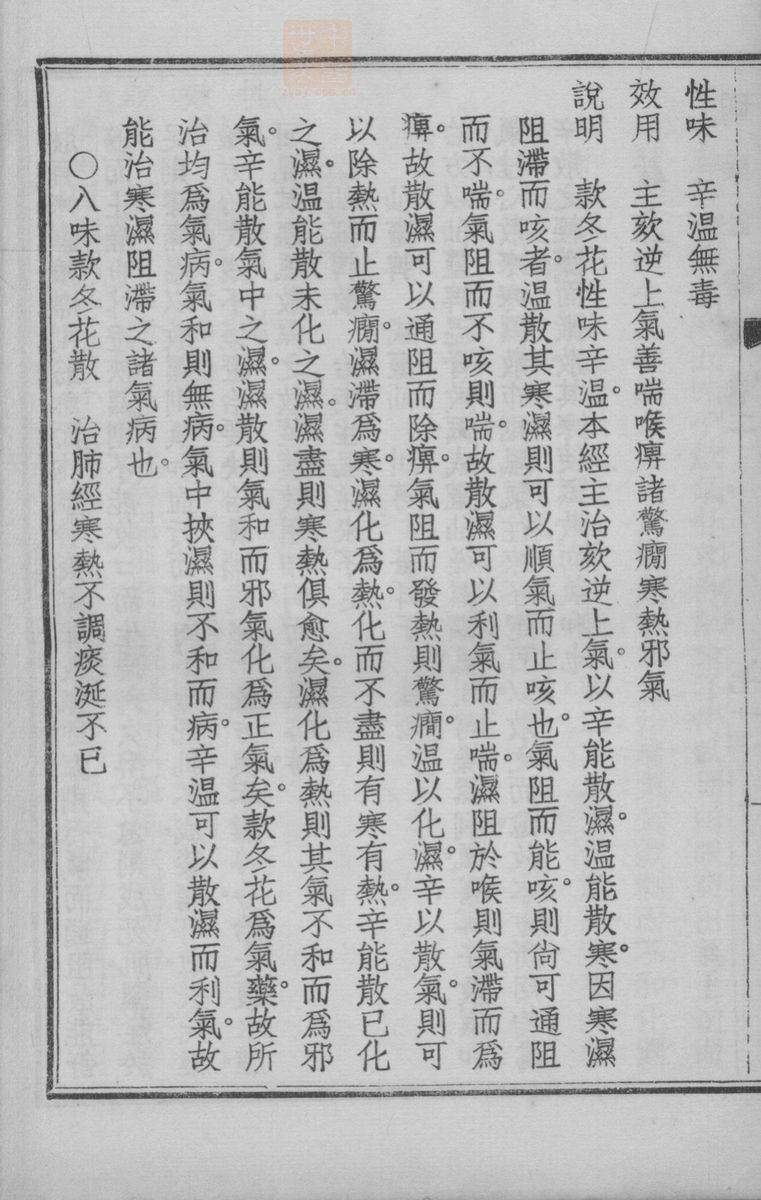 性味　辛温無毒
效用　主欬逆上氣善喘喉痹諸驚癇寒熱邪氣
說明　款冬花性味辛温。本經主治欬逆上氣。以辛能散濕。温能散寒。因寒濕
阻滯而咳者。温散其寒濕則可以順氣而止咳也。氣阻而能咳。則尙可通阻
而不喘。氣阻而不咳則喘。故散濕可以利氣而止喘。濕阻於喉則氣滯而爲
痹。故散濕可以通阻而除痹。氣阻而發熱則驚癎。温以化濕。辛以散氣。則可
以除熱而止驚癎。濕滯爲寒。濕化爲熱。化而不盡則有寒有熱。辛能散已化
之濕。温能散未化之濕。濕盡則寒熱俱愈矣。濕化爲熱則其氣不和而爲邪
氣。辛能散氣中之濕。濕散則氣和而邪氣化爲正氣矣。款冬花爲氣藥。故所
治均爲氣病。氣和則無病。氣中挾濕則不和而病。辛温可以散濕而利氣。故
能治寒濕阻滯之諸氣病也。
〇八味款冬花散　治肺經寒熱不調痰涎不已